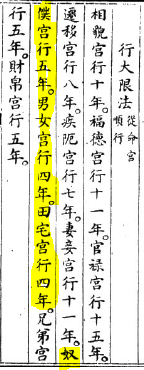 行大限法從命宮順行
相貌宮行十年。福德宮行十一年。官祿宮行十五年。
遷移宮行八年。疾阨宮行七年。妻妾宮行十一年。奴
僕宮行五年。男女宮行四年。田宅宮行四年。兄弟宮
行五年。財帛宮行五年。